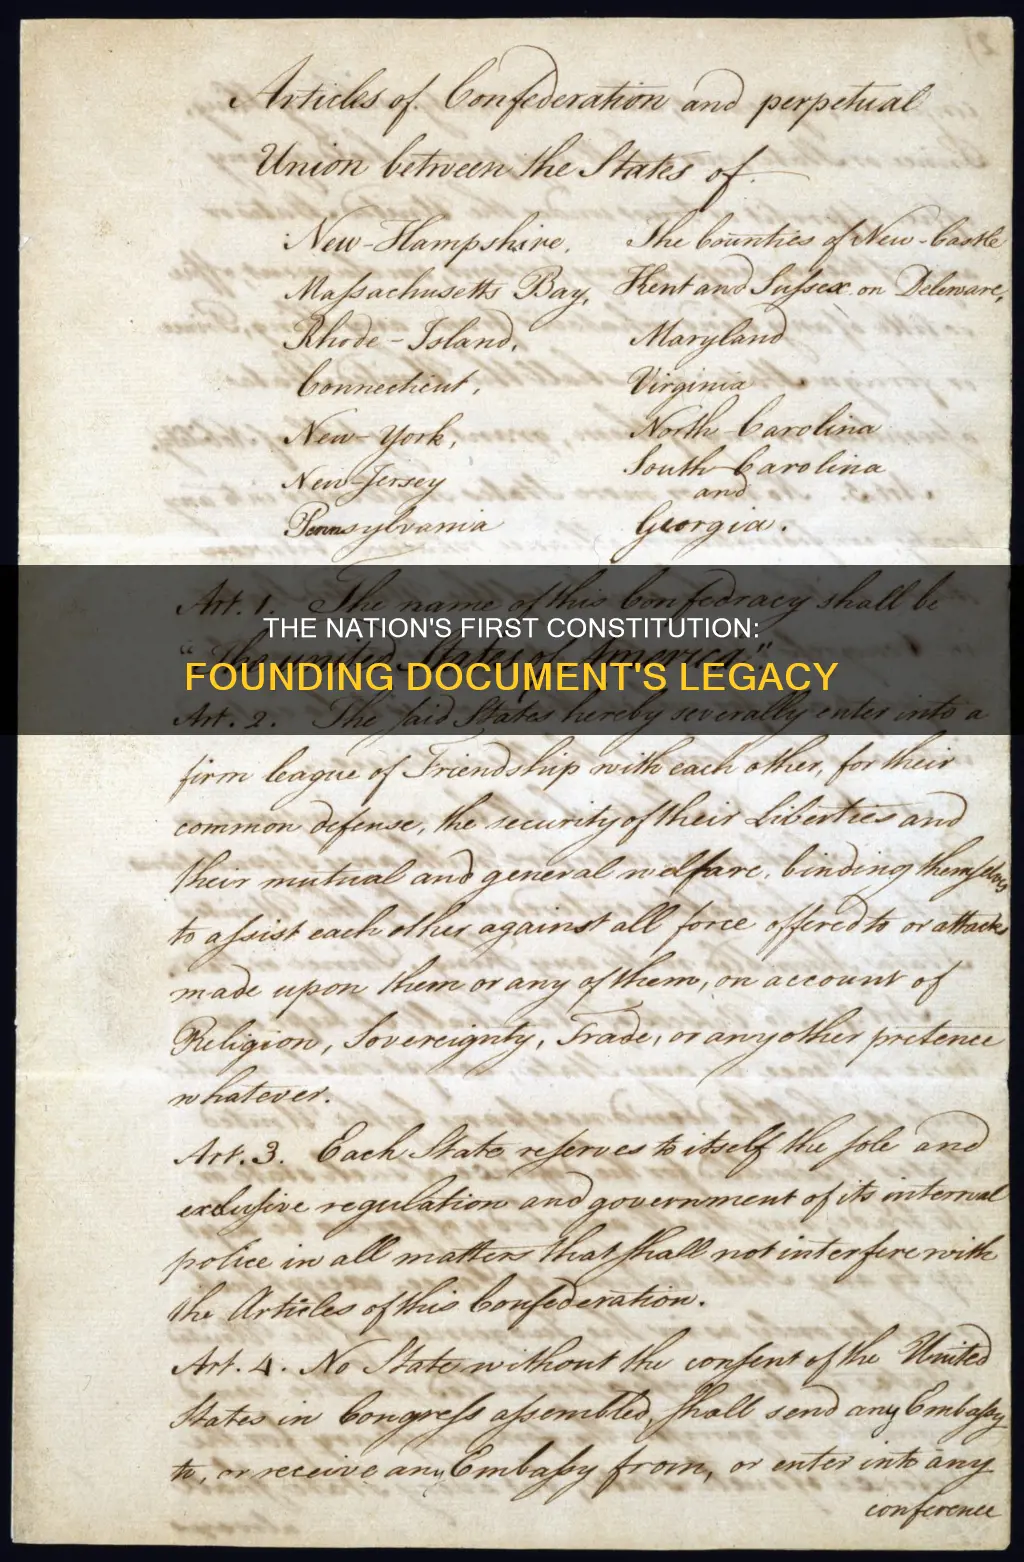 Articles of Confederation and perpetual
Union between the States of
New-Hampshire, The Counties of New-Castle
Maſsachusetts Bay, Kent and Suſsex on Deleware,
Rhode-Island, Maryland
Connecticut, Virginia
New-York, North Carolina
New-Jersey South Carolina
and
Pennsylvania Georgia.
Art. 1. The name of this Confedracy shall be
THE NATION'S FIRST CONSTITUTION:
"The united States of America."
FOUNDING DOCUMENT'S LEGACY
Art. 2. The ſaid States hereby severally enter into a
firm league of Friendship with each other, for their
common defense, the security of their Liberties and
their mutual and general welfare, binding themſelves
to aſsist each other against all force offered to or attacks
made upon them or any of them, on account of
Religion, Sovereignty, Trade, or any other pretence
whatever.
Art. 3. Each State reſerves to itself the ſole and
excluſive regulation and government of its internal
police in all matters that ſhall not interfere with
the Articles of this Confederation.
Art. 4. No State without the conſent of the United
States in Congreſs aſsembled, ſhall send any Embaſsy
to, or receive any Embaſsy from, or enter into any
conference